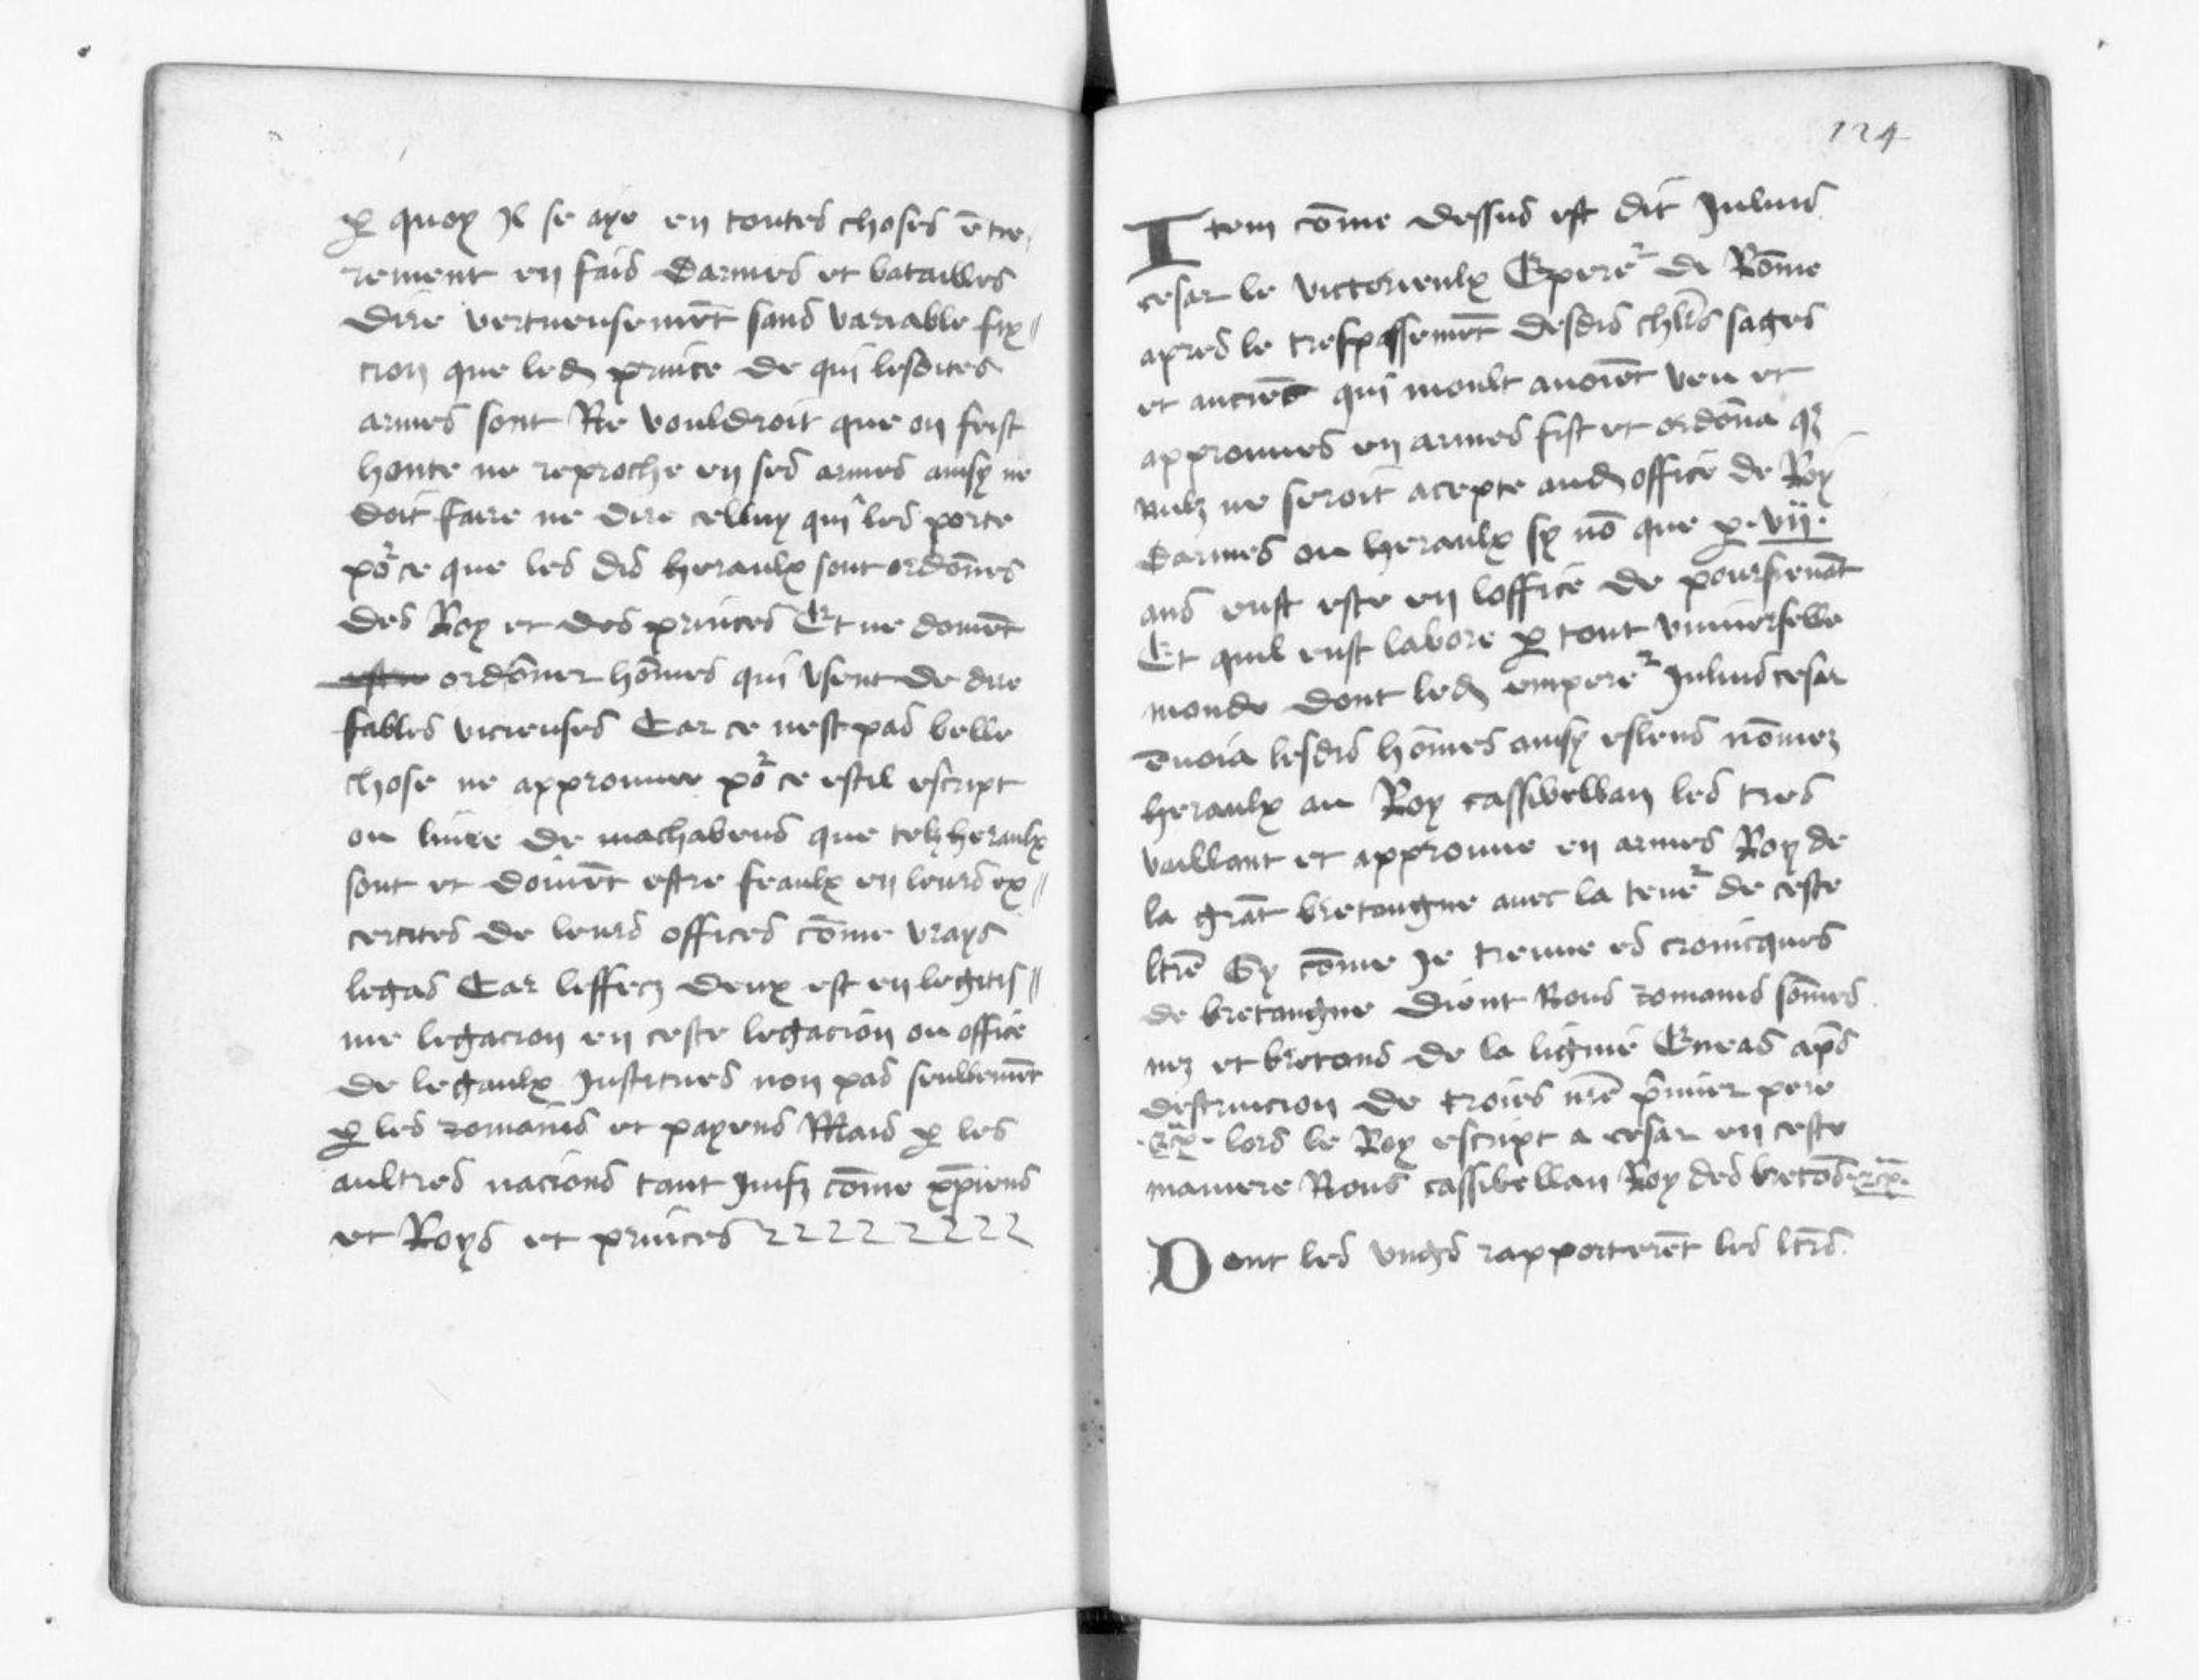 ꝑ quoy Il se aye en toutes choses ētie,
rement en fais darmes et batailles
dire vertueusemēt sans variable fix〃
cion que led prince de qui lesdites
armes sont Ne vouldroit que on feist
honte ne reproche en ses armes ainsy ne
doit faire ne dire celluy qui les porte
poᷣ ce que les dis heraulx sont ordōnes
des Roy et des princes Et ne doiuēt
ordōner hōmes qui vsent de dire
fables vicieuses Car ce nest pas belle
chose ne approuuee poᷣ ce estil escript
ou liure de machabeus que telz heraulx
sont et doiuēt estre feaulx en leurs ex〃
cercites de leurs offices cōme vrays
legas Car leffect deux est en legitis〃
me legacion en ceste legacion ou office
de legaulx Institues non pas seullemēt
ꝑ les romains et payens Mais ꝑ les
aultres nacions tant Juifz cōme xp̄iens
et Roys et princes
124
Item cōme dessus est dit Julius
cesar le victorieulx Eꝑereᷣ de Rōme
apres le trespassemēt desdis chl̄rs sages
et anciēs qui moult auoiēt veu et
approuues en armes fist et ordōna qȝ
nulz ne seroit acepte aud office de Roy
darmes ou heraulx sy nō que ꝑ .vii.
ans eust este en loffice de poursieuāt
Et quil eust labore ꝑ tout vniuerselle
monde dont led empereᷣ Julius cesar
ēuoia lesdis hōmes ainsy esleus nōmez
heraulx au Roy cassibellan les tres
vaillant et approuue en armes Roy de
la grāt bretaigne auec la teneᷣ de ceste
lr̄e Sy cōme Je treuue es cronicques
de bretaigne dient Nous romains sōmes
nez et bretons de la lignie Eneas ap̄s
destruicion de troies nr̄e p̄mier pere
lors le Roy escript a cesar en ceste
maniere Nous cassibellan Roy des bretōs
Dont les vngs rapporterēt les lr̄es